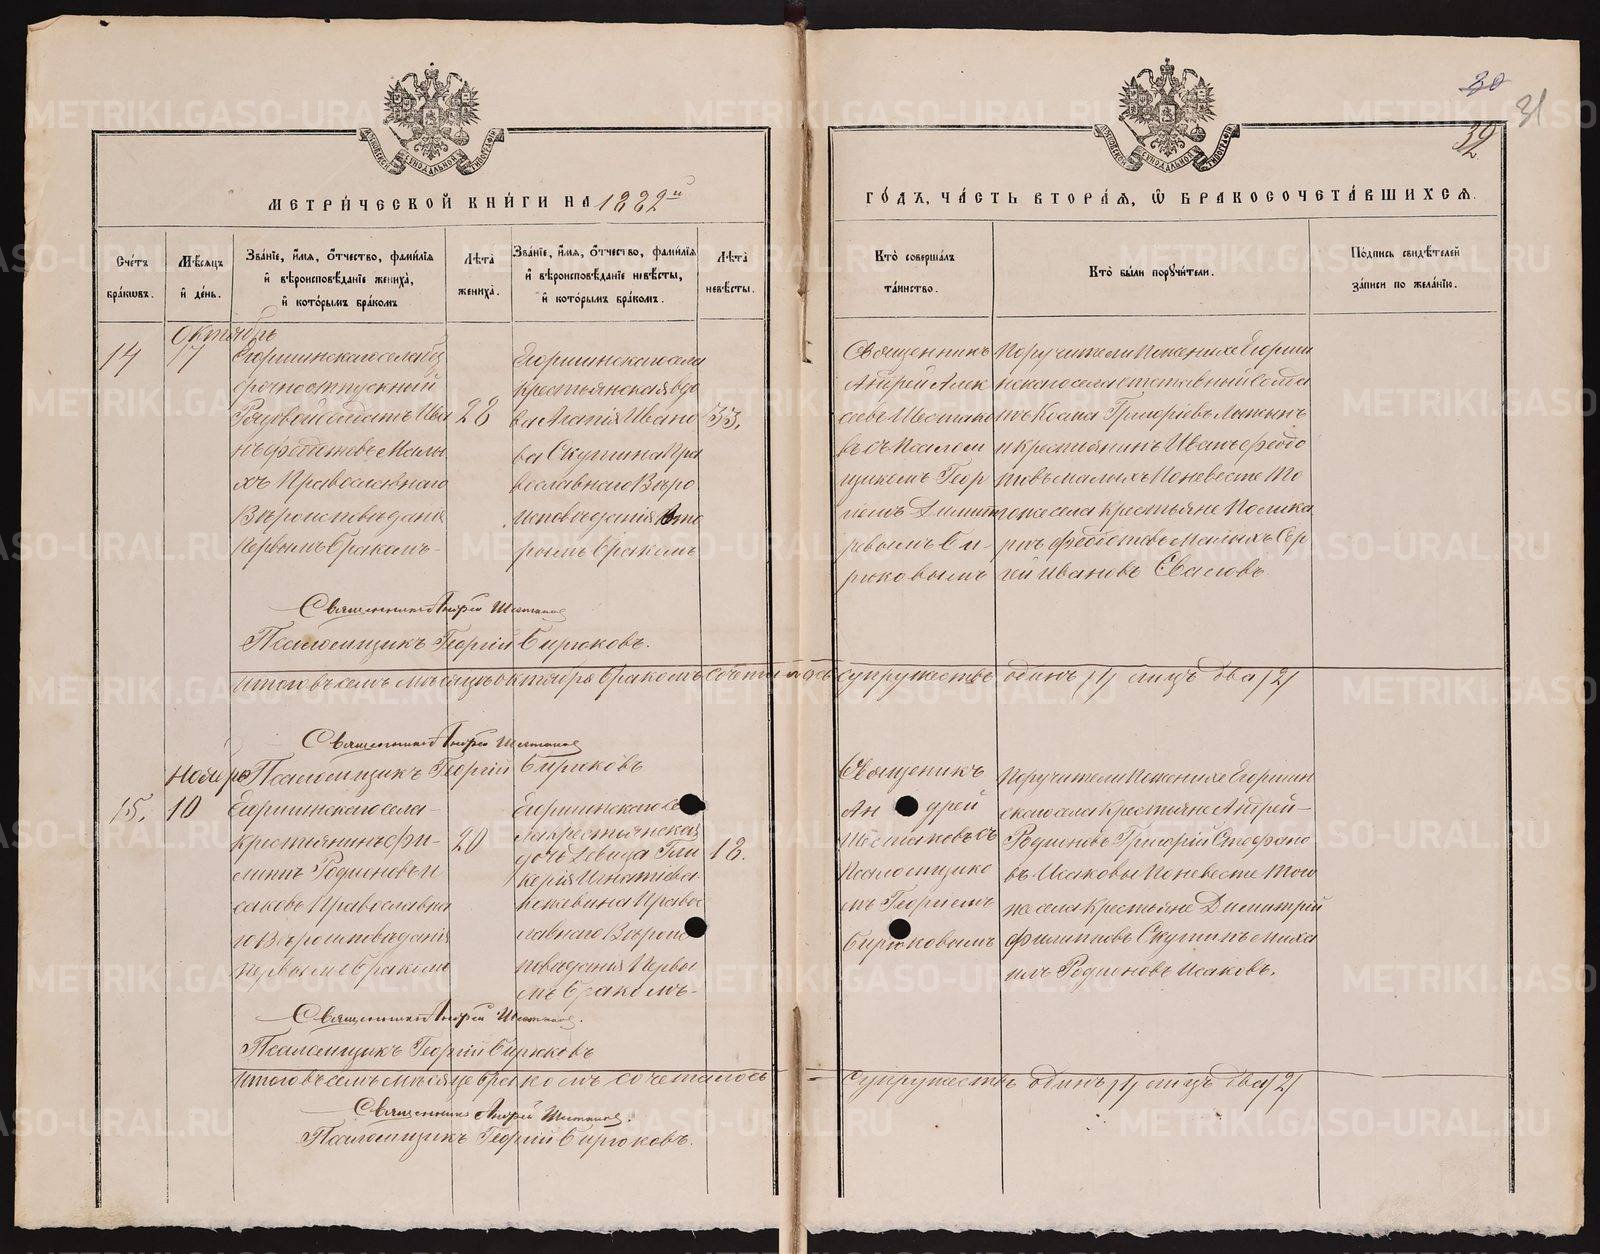 МЕТРИ́ЧЕСКОЙ КНИ́ГИ НА 1882й
ГО́ДЪ, ЧА́СТЬ ВТОРА́Я, Ѿ БРАКОСОЧЕТА́ВШИХСЯ.
30
31
32
МОСКОВСКОЙ СИНОДАЛЬНОЙ ТИПОГРАФІИ
МОСКОВСКОЙ СИНОДАЛЬНОЙ ТИПОГРАФІИ
Сче́тъ бра́кωвъ.
Мѣ́сяцъ и҆ де́нь.
Зва́нїе, и҆́мя, ѻ҆́тчество, фами́лїя и҆ вѣроисповѣ́данїе жениха̀, и҆ кото́рымъ бра́комъ
Лѣ́та жениха̀.
Зва́нїе, и҆́мя, ѻ҆́тчество, фами́лїя и҆ вѣроисповѣ́данїе невѣ́сты, и҆ кото́рымъ бра́комъ.
Лѣ́та невѣ́сты.
Кто̀ соверша́лъ та́инство.
Кто̀ бы́ли поручи́тели.
По́дпись свидѣ́телей за́писи по жела́нїю.
Октябрь
14
17
Егоршинскаго села без
срочноотпускный
Рядовой солдатъ Ива
нъ Федотовъ Малы
хъ Православнаго
Вѣроисповѣданія
Первымъ бракомъ
28
Егоршинскаго села
крестьянская вдо
ва Агапія Ивано
ва Скутина Пра
вославнаго Вѣро
исповѣданія Вто
рымъ бракомъ
33.
Священникъ
Андрей Алек
сѣевъ Шестако
въ съ Псалом
щикомъ Геор
гіемъ Димит
ріевымъ Би
рюковымъ
Поручители По женихе Егорши
нскаго села отставный солда
тъ Козма Григорьевъ
и крестьянинъ Иванъ Федо
товъ Малыхъ По невесте То
гоже села крестьяне Полика
рпъ Федотовъ Малыхъ Сер
гей Ивановъ
Священникъ Андрей Шестаковъ
Псаломщикъ Георгій Бирюковъ.
Итого въ семъ мѣсяцѣ октябрѣ бракомъ сочеталось супружество одинъ /1/ лицъ два /2/
Священникъ Андрей Шестаковъ
Псаломщикъ Георгій Бирюковъ
Ноябрь
15.
10
Егоршинскаго села
крестьянинъ Фи
липпъ Родионовъ И
саковъ Православна
го Вѣроисповѣданія
первымъ бракомъ
20
Егоршинскаго се
ла крестьянская
дочь Девица Гли
керія Игнатіева
Кожевина Правос
лавнаго Вѣроис
поведанія Первы
мъ бракомъ
18.
Священикъ
Андрей
Шестаковъ съ
Псаломщико
мъ Георгіемъ
Бирюковымъ
Поручители По женихе Егоршин
скаго села крестьяне Андрей
Родионовъ Григорій Стефано
въ Исаковы По невесте Того
же села крестьяне Димитрій
Филипповъ Скутинъ Миха
илъ Родионовъ Исаковъ.
Священникъ Андрей Шестаковъ.
Псаломщикъ Георгій Бирюковъ
Итого въ семъ мѣсяце бракомъ сочеталось супружествъ одинъ /1/ лицъ два /2/
Священникъ Андрей Шестаковъ.
Псаломщикъ Георгій Бирюковъ.
METRIKI.GASO-URAL.RU